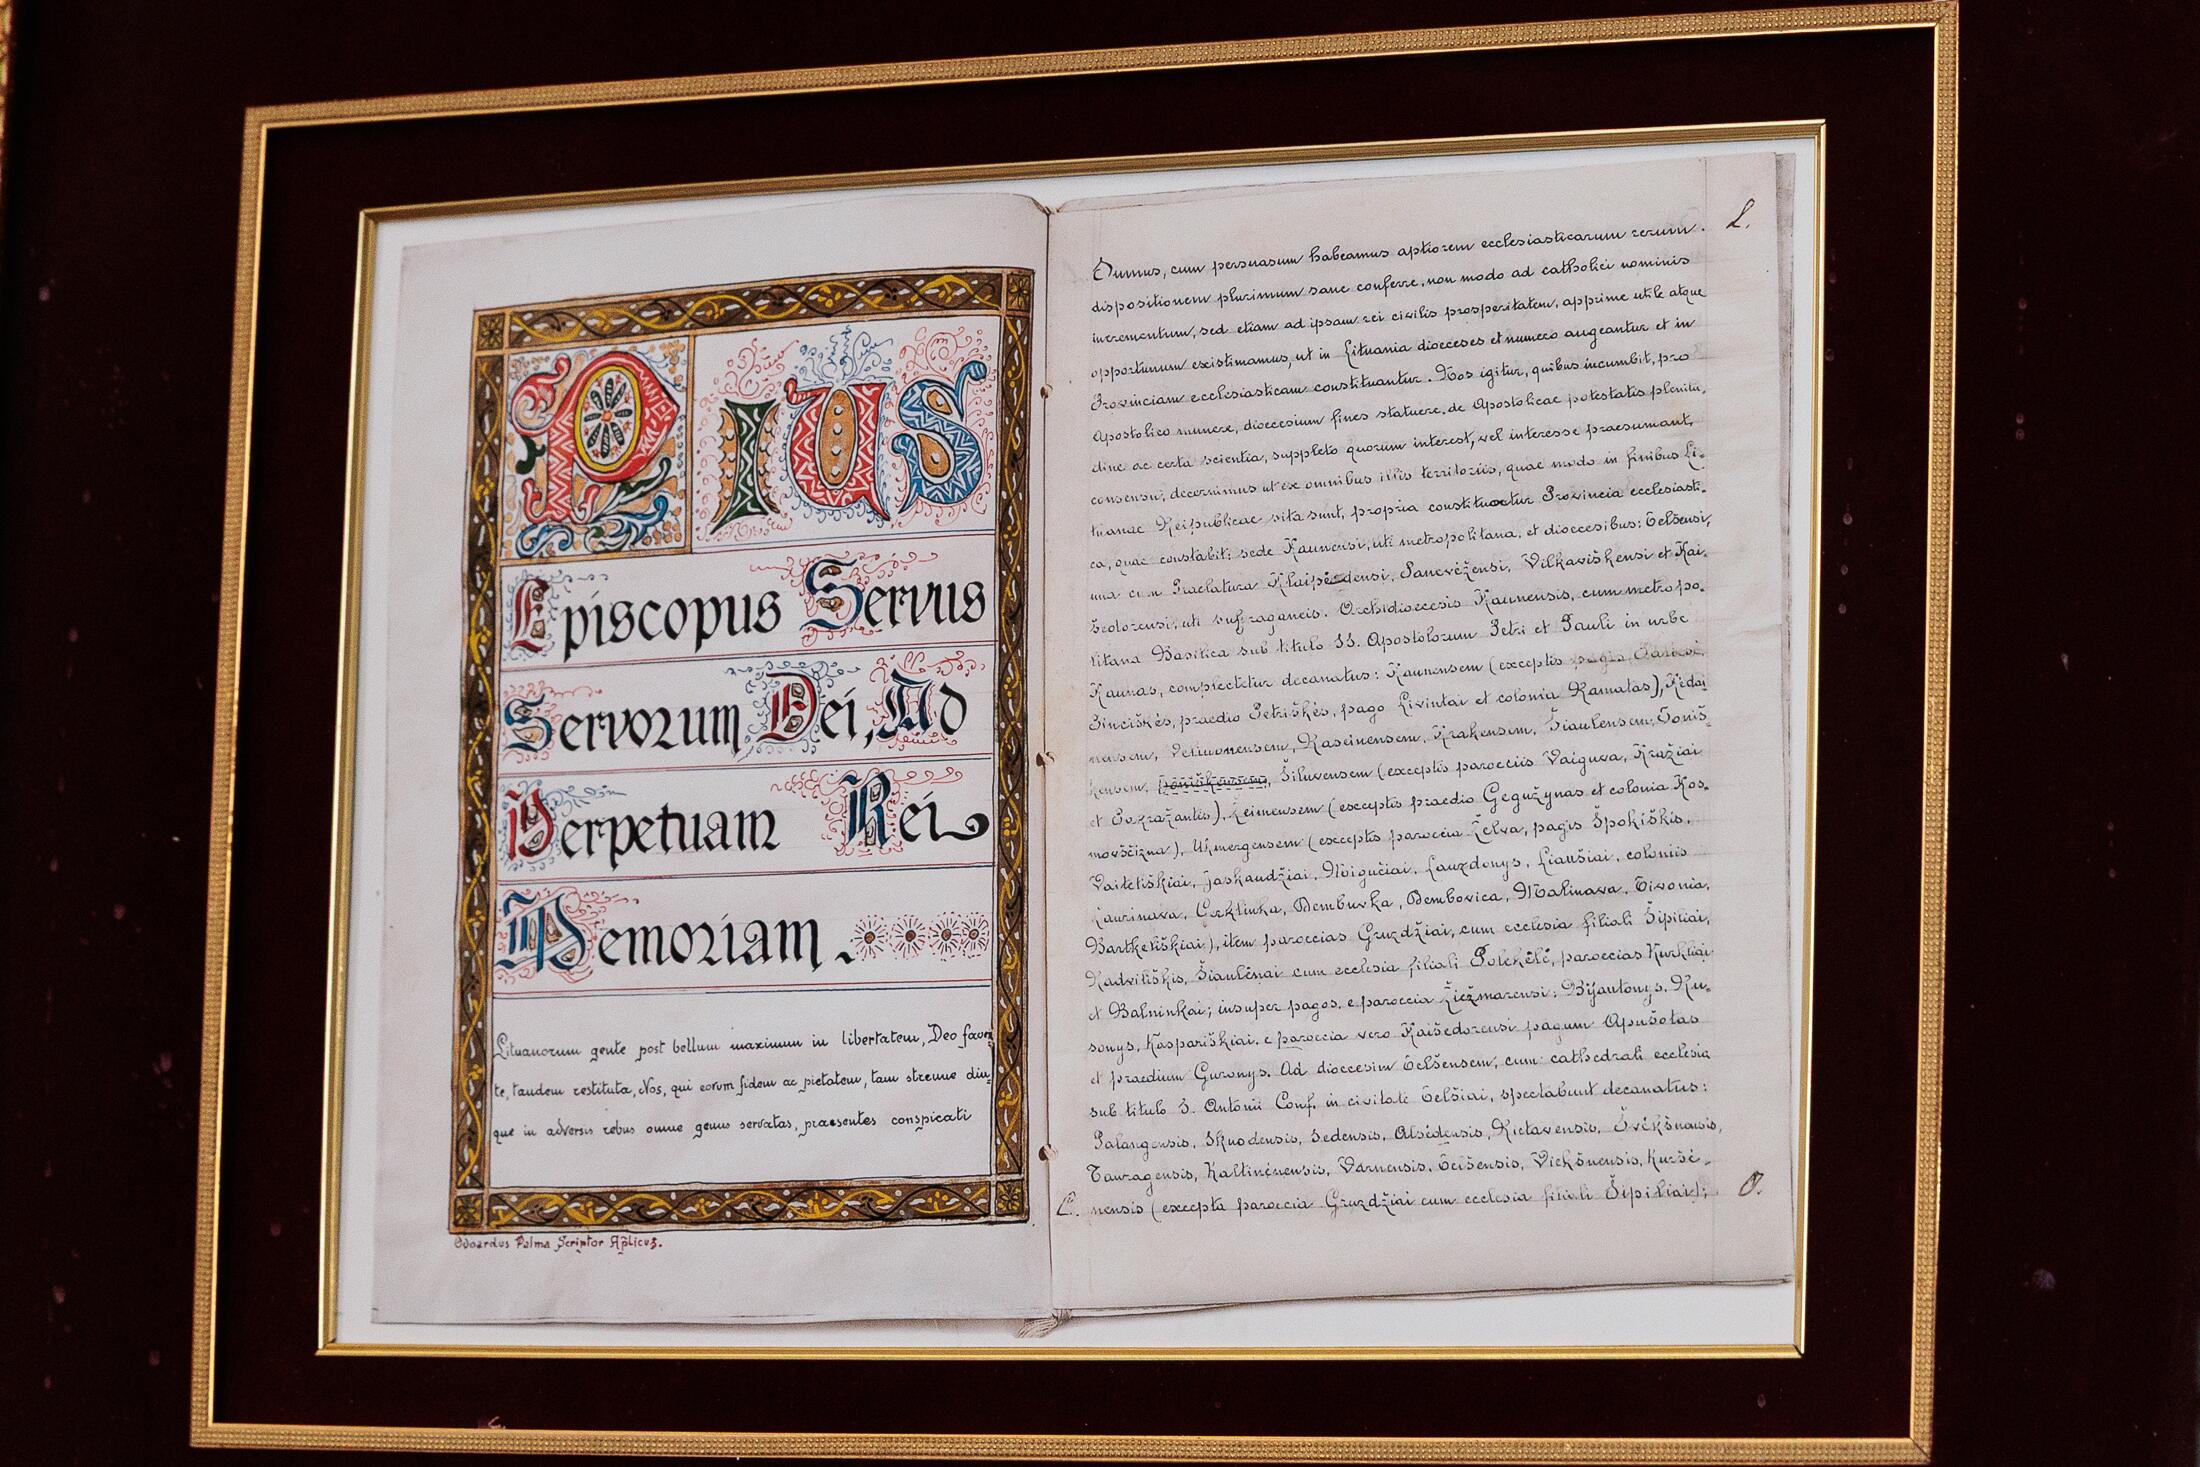 Pius
Episcopus Servus
Servorum Dei, Ad
Perpetuam Rei
Memoriam.
Lituanorum gente post bellum maximum in libertatem, Deo faven
te, tandem restituta, Nos, qui eorum fidem ac pietatem, tam strenue diu
que in adversis rebus omne genus servatas, praesentes conspicati
Odoardus Palma Scriptor Aplicus.
2.
sumus, cum persuasum habeamus aptiorem ecclesiasticarum rerum
dispositionem plurimum sane conferre, non modo ad catholici nominis
incrementum, sed etiam ad ipsam rei civilis prosperitatem, apprime utile atque
opportunum existimamus, ut in Lituania dioeceses et numero augeantur et in
Provinciam ecclesiasticam constituantur. Nos igitur, quibus incumbit, pro
Apostolico munere, dioecesium fines statuere, de Apostolicae potestatis plenitu,
dine ac certa scientia, suppleto quorum interest, vel interesse praesumant,
consensu, decernimus ut ex omnibus illis territoriis, quae modo in finibus Li-
tuanae Reipublicae sita sunt, propria constituatur Provincia ecclesiasti-
ca, quae constabit: sede Kaunensi, uti metropolitana, et dioecesibus: Telšensi,
una cum Praelatura Klaipedensi, Panevėžensi, Vilkaviškensi et Kai-
šedorensi, uti suffraganeis. Archidioecesis Kaunensis, cum metropo-
litana Basilica sub titulo SS. Apostolorum Petri et Pauli in urbe
Kaunas, complectetur decanatus: Kaunensem (exceptis pagis
Pinciškės, praedio Petriškės, pago Livintai et colonia Ramatas), Kėdai
nensem, Veliuonensem, Raseinensem, Krakensem, Šiaulensem, Joniš-
kensem, Šiluvensem (exceptis paroeciis Vaiguva, Kražiai
et Pakražantis), Žeimensem (exceptis praedio Gegužynas et colonia Kos-
movščizna), Ukmergensem (exceptis paroecia Želva, pagis Špokiškis,
Vaiteliškiai, Jaskaudžiai, Lauzdonys, Liaušiai, coloniis
Laurinava, Cerklinka, Bembuvka, Bembovica, Malinava, Tivonia,
Bartkeliškiai), item paroecias Gruzdžiai, cum ecclesia filiali Šipiliai,
Radviliškis, Šiaulėnai cum ecclesia filiali Polekėlė, paroecias Kurkliai
et Balninkai; insuper pagos, e paroecia Žiežmarensi: Bijautonys, Ru-
sonys, Kaspariškiai, e paroecia vero Kaišedorensi pagum Apušotas
et praedium Guronys. Ad dioecesim Telšensem, cum cathedrali ecclesia
sub titulo S. Antonii Conf. in civitate Telšiai, spectabunt decanatus:
Palangensis, Skuodensis, Sedensis, Alsėdensis, Rietavensis, Švėkšnensis,
Tauragensis, Kaltinėnensis, Varnensis, Telšensis, Viekšnensis, Kuršė-
C. nensis (excepta paroecia Gruzdžiai cum ecclesia filiali Šipiliai); O.